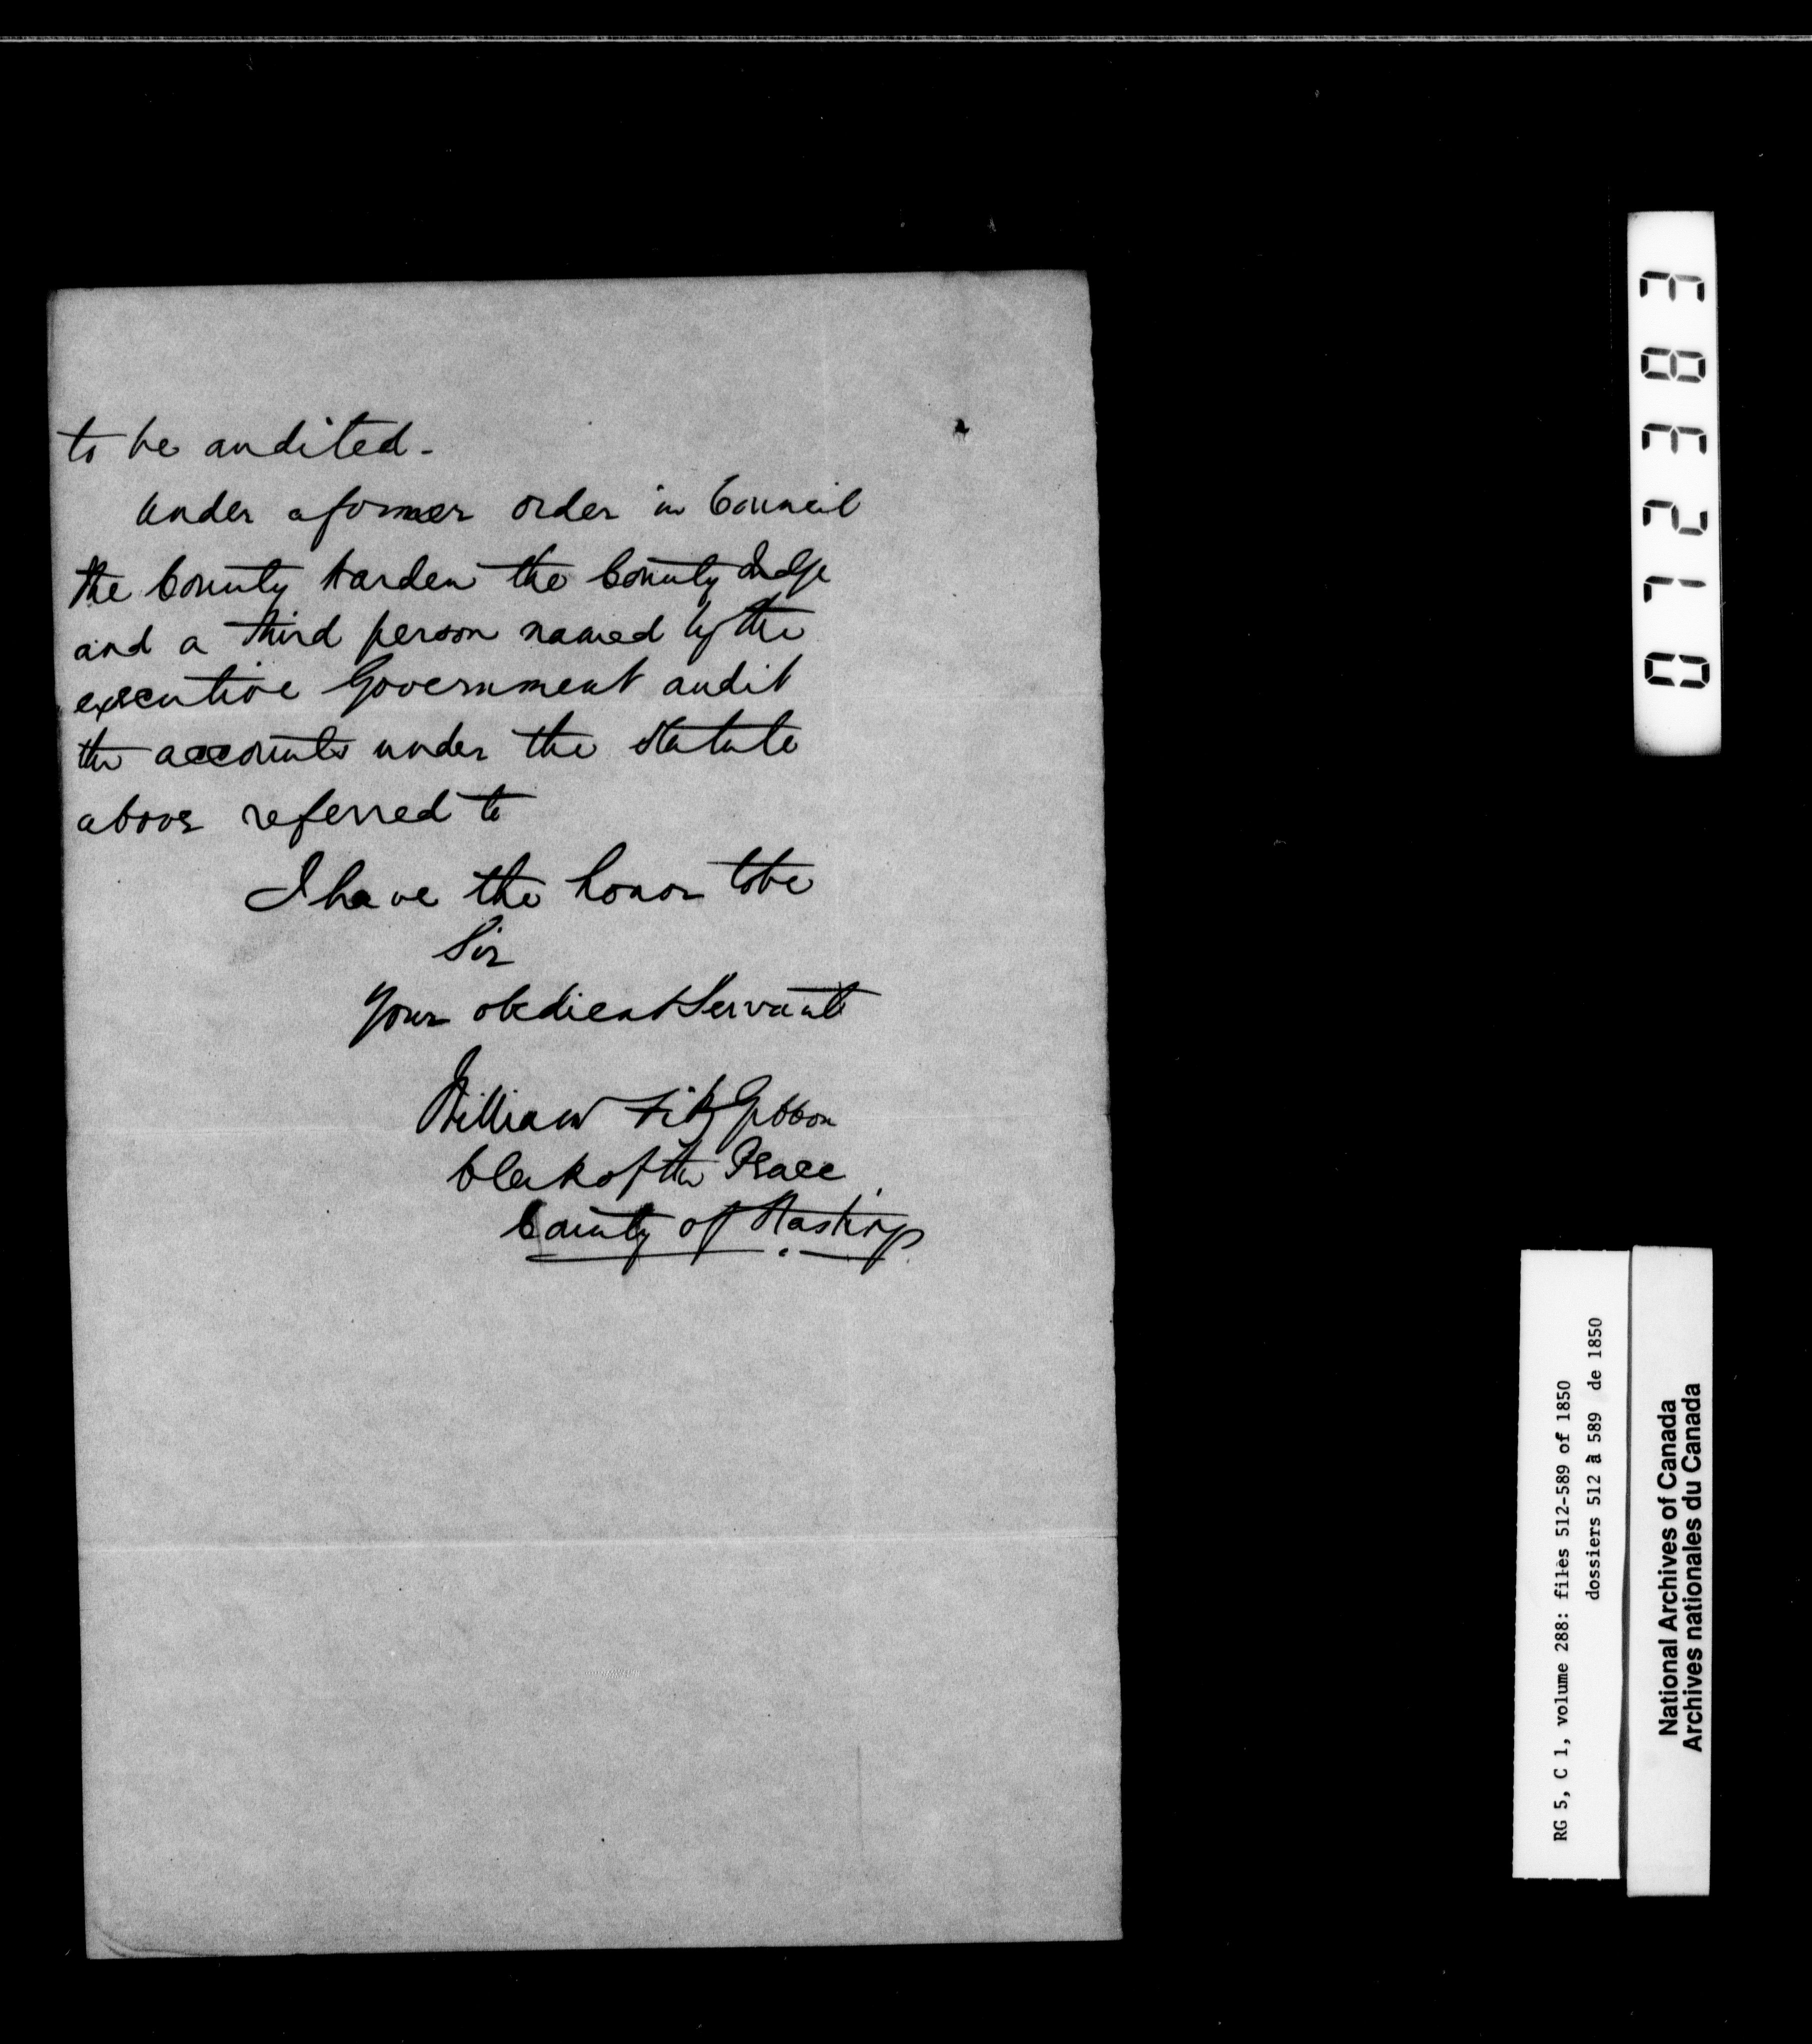 to be audited -
Under a former order in Council
the County Warden the County Judge
and a third person named by the
executive Government audit
the accounts under the Statute
above referred to
I have the honor to be
Sir
Your obedient Servant
William FitzGibbon
Clerk of the Peace
County of Hastings
017383
RG 5, C 1, volume 288: files 512-589 of 1850
dossiers 512 à 589 de 1850
National Archives of Canada
Archives nationales du Canada